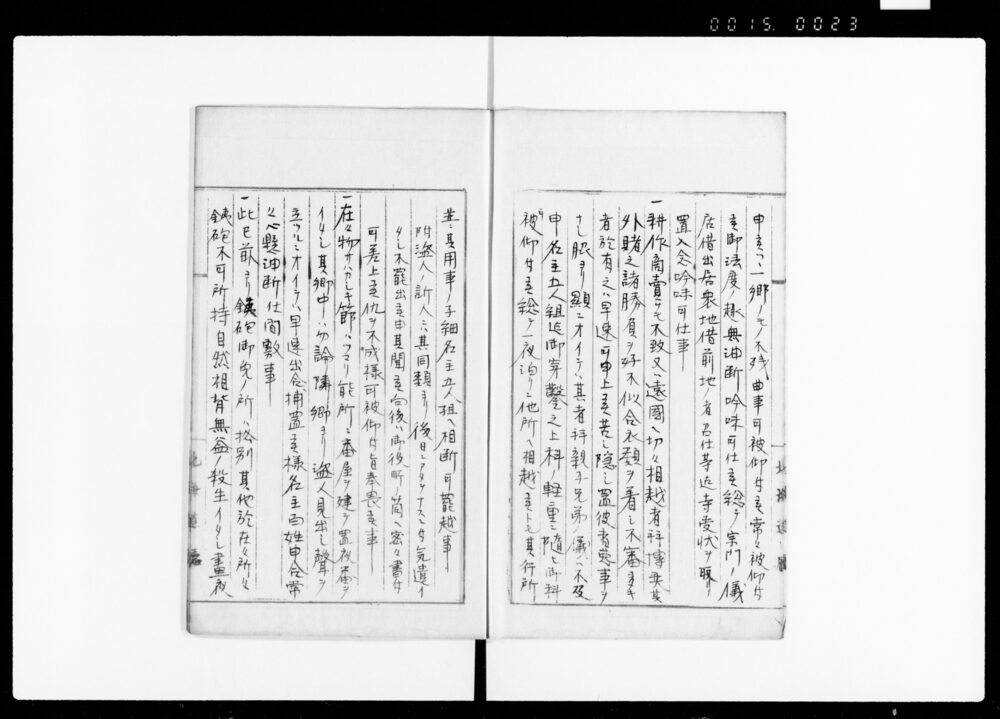 0015. 0023
申立候ハヽ一郷ノモノ不残曲事可被仰付候常々被仰付
候御法度ノ趣無油断吟味可仕候総テ宗門ノ儀
居借出居衆地借前地ノ者召仕等迄寺受状ヲ取リ
置入念吟味可仕事
一耕作商賣ヲモ不致又ハ遠國ヘ切々相越者并博奕其
外賭之諸勝負ヲ好不似合衣類ヲ着シ不審ナル
者於有之ハ早速可申上候若シ隠シ置彼者悪事ヲ
ナシ脇ヨリ顯ニオイテハ其者并親子兄弟ノ儀ハ不及
申名主五人組迄御穿鑿之上科ノ軽重ニ随ヒ御科
被仰付候総テ一夜泊リニ他所ヘ相越候トモ其行所
並ニ其用事ノ子細名主五人組ヘ相断可罷越事
附盗人ノ訴人ハ其同類ヨリ後日ニアタヲナスニ付気遣イ
タシ不罷出候由其聞候向後ハ御役所箇ヘ密々書付
可差上候仇ヲ不成様可被仰付旨奉畏候事
一在々物サハカシキ節ハツマリ能所ニ番屋ヲ建テ置夜番ヲ
イタシ其郷中ハ勿論隣郷ヨリ盗人見出シ聲ヲ
立ツルニオイテハ早速出合捕置候様名主百姓申合常
々心懸油断仕間敷事
一此已前ヨリ銕砲御免ノ所ハ格別其他於在々所々
銕砲不可所持自然相背無益ノ殺生イタシ晝夜